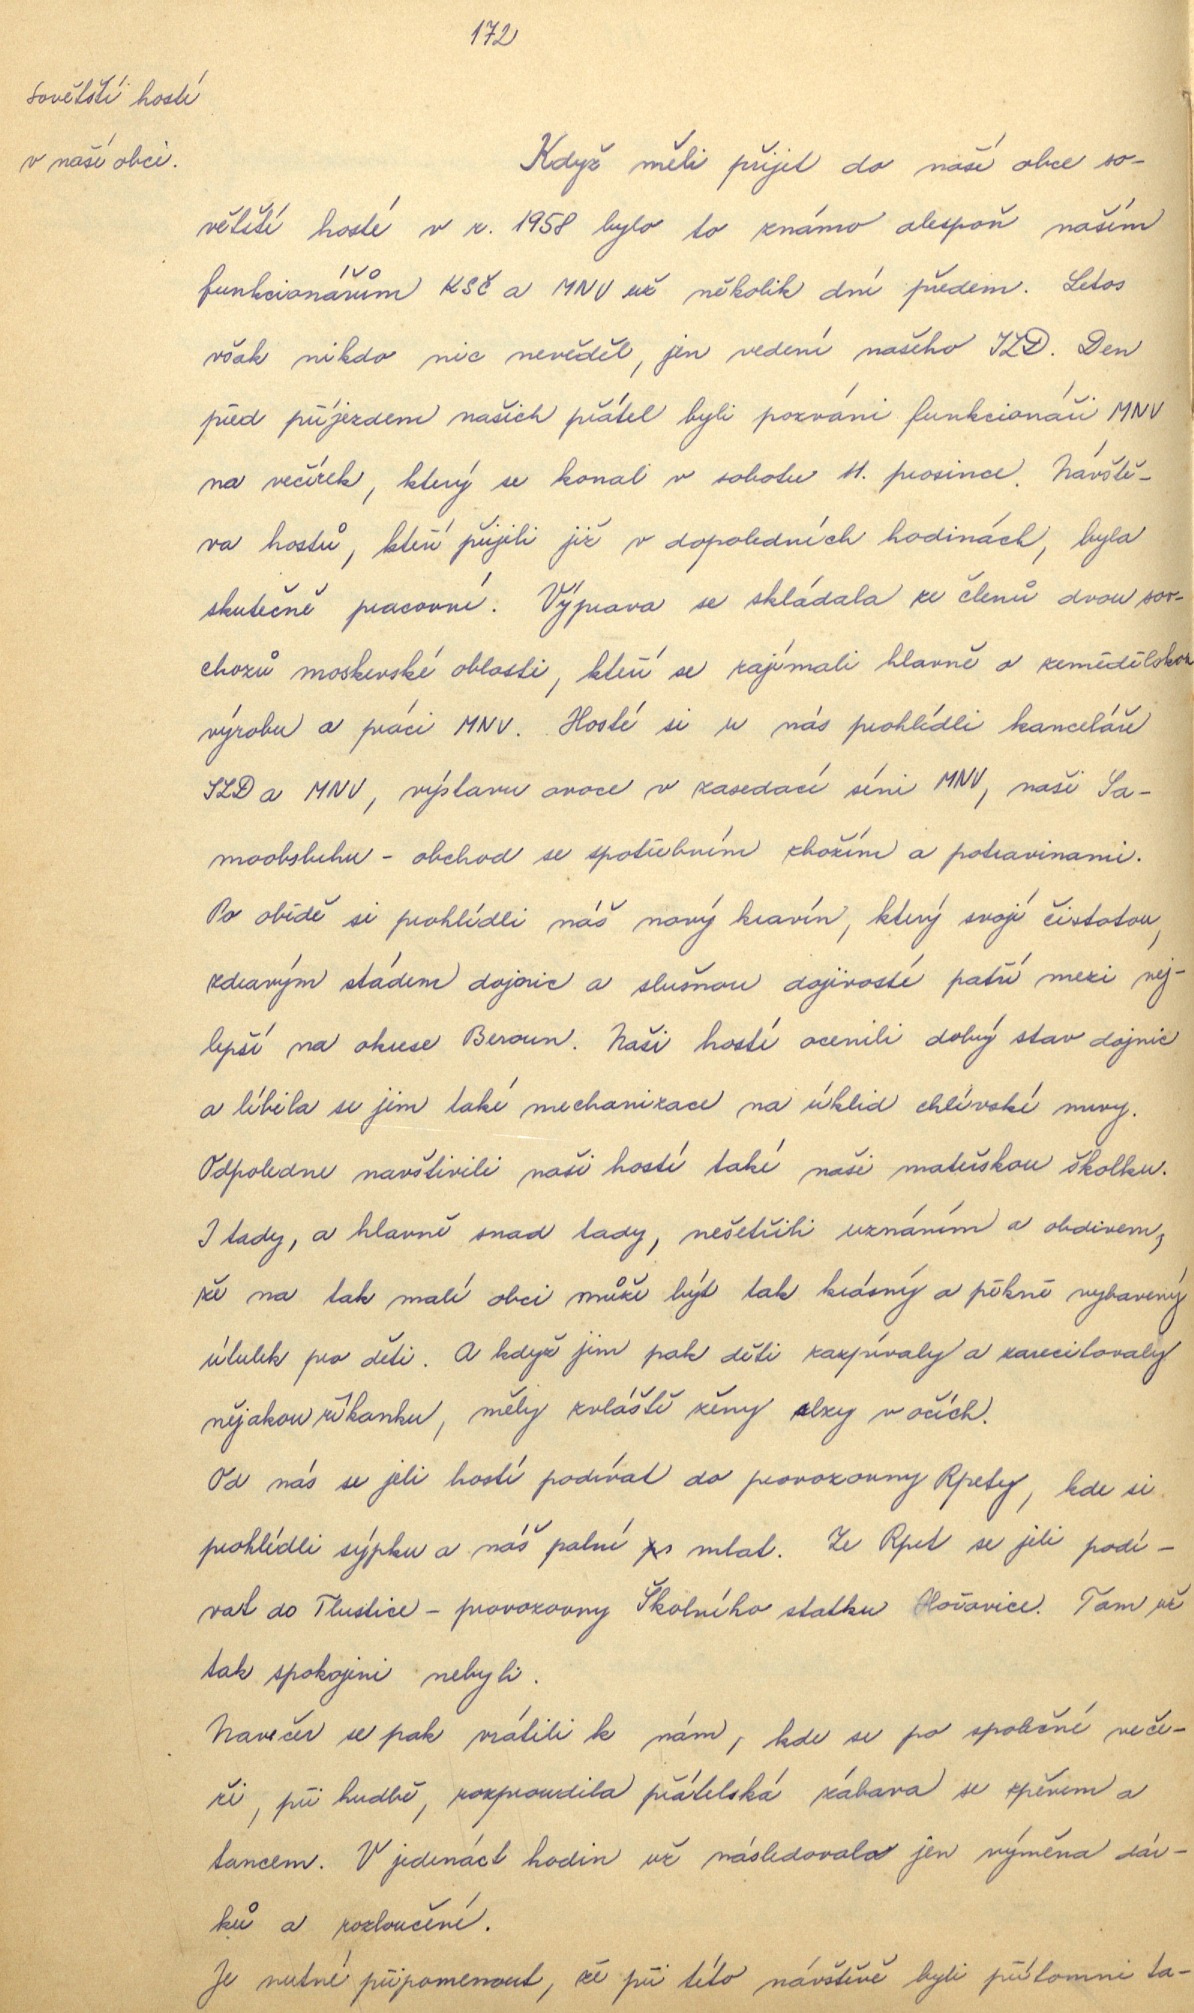 172
Sovětští hosté
v naší obci.
Když měli přijet do naší obce so-
větští hosté v r. 1958 bylo to známo alespoň našim
funkcionářům KSČ a MNV už několik dní předem. Letos
však nikdo nic nevěděl, jen vedení našeho JZD. Den
před příjezdem našich přátel byli pozváni funkcionáři MNV
na večírek, který se konal v sobotu 11. prosince. Návště-
va hostů, kteří přijeli již v dopoledních hodinách, byla
skutečně pracovní. Výprava se skládala ze členů dvou sov-
chozů moskevské oblasti, kteří se zajímali hlavně o zemědělskou
výrobu a práci MNV. Hosté si u nás prohlédli kanceláře
JZD a MNV, výstavu ovoce v zasedací síni MNV, naši Sa-
moobsluhu - obchod se spotřebním zbožím a potravinami.
Po obědě si prohlédli náš nový kravín, který svojí čistotou,
zdravým stádem dojnic a slušnou dojivostí patří mezi nej-
lepší na okrese Beroun. Naši hosté ocenili dobrý stav dojnic
a líbila se jim také mechanizace na úklid chlévské mrvy.
Odpoledne navštívili naši hosté také naši mateřskou školku.
I tady, a hlavně snad tady, nešetřili uznáním a obdivem,
že na tak malé obci může být tak krásný a pěkně vybavený
útulek pro děti. A když jim pak děti zazpívaly a zarecitovaly
nějakou říkanku, měly zvláště ženy slzy v očích.
Od nás se jeli hosté podívat do provozovny Rpety, kde si
prohlédli sýpku a náš polní mlat. Ze Rpet se jeli podí-
vat do Tlustice - provozovny Školního statku Hořovice. Tam už
tak spokojeni nebyli.
Navečer se pak vrátili k nám, kde se po společné veče-
ři, při hudbě, rozproudila přátelská zábava se zpěvem a
tancem. V jedenáct hodin už následovala jen výměna dár-
ků a rozloučení.
Je nutné připomenout, že při této návštěvě byli přítomni ta-